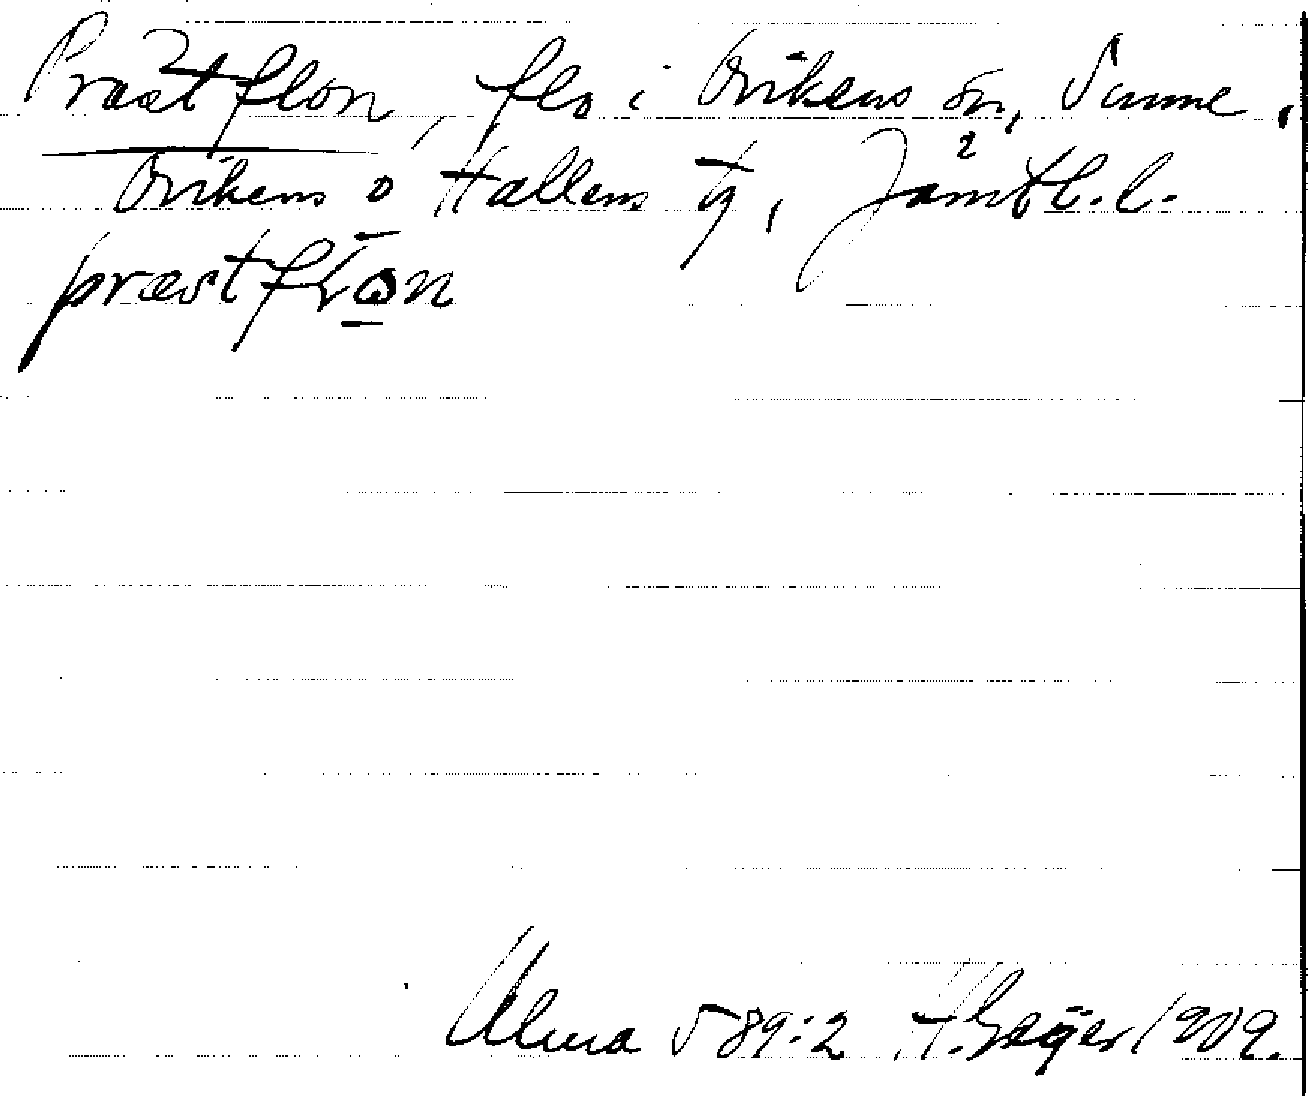 Prästflon, flo i Ovikens sn, Sunne,
Ovikens o Hallens tg, Jämtl. l.
præstflon
Ulma 589:2 H. Geijer 1909.